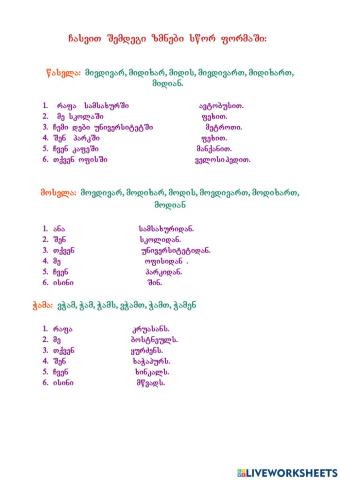 ჩასვით შემდეგი ზმნები სწორ ფორმაში:
წასვლა: მივდივარ, მიდიხარ, მიდის, მივდივართ, მიდიხართ,
მიდიან.
1. რაფა სამსახურში ავტობუსით.
2. მე სკოლაში ფეხით.
3. ჩემი დები უნივერსიტეტში მეტროთი.
4. შენ პარკში ფეხით.
5. ჩვენ კაფეში მანქანით.
6. თქვენ ოფისში ველოსიპედით.
მოსვლა: მოვდივარ, მოდიხარ, მოდის, მოვდივართ, მოდიხართ,
მოდიან
1. ანა სამსახურიდან.
2. შენ სკოლიდან.
3. თქვენ უნივერსიტეტიდან.
4. მე ოფისიდან .
5. ჩვენ პარკიდან.
6. ისინი შინ.
ჭამა: ვჭამ, ჭამ, ჭამს, ვჭამთ, ჭამთ, ჭამენ
1. რაფა კრუასანს.
2. მე ბოსტნეულს.
3. თქვენ ყურძენს.
4. შენ ხაჭაპურს.
5. ჩვენ ხინკალს.
6. ისინი მწვადს.
LIVEWORKSHEETS